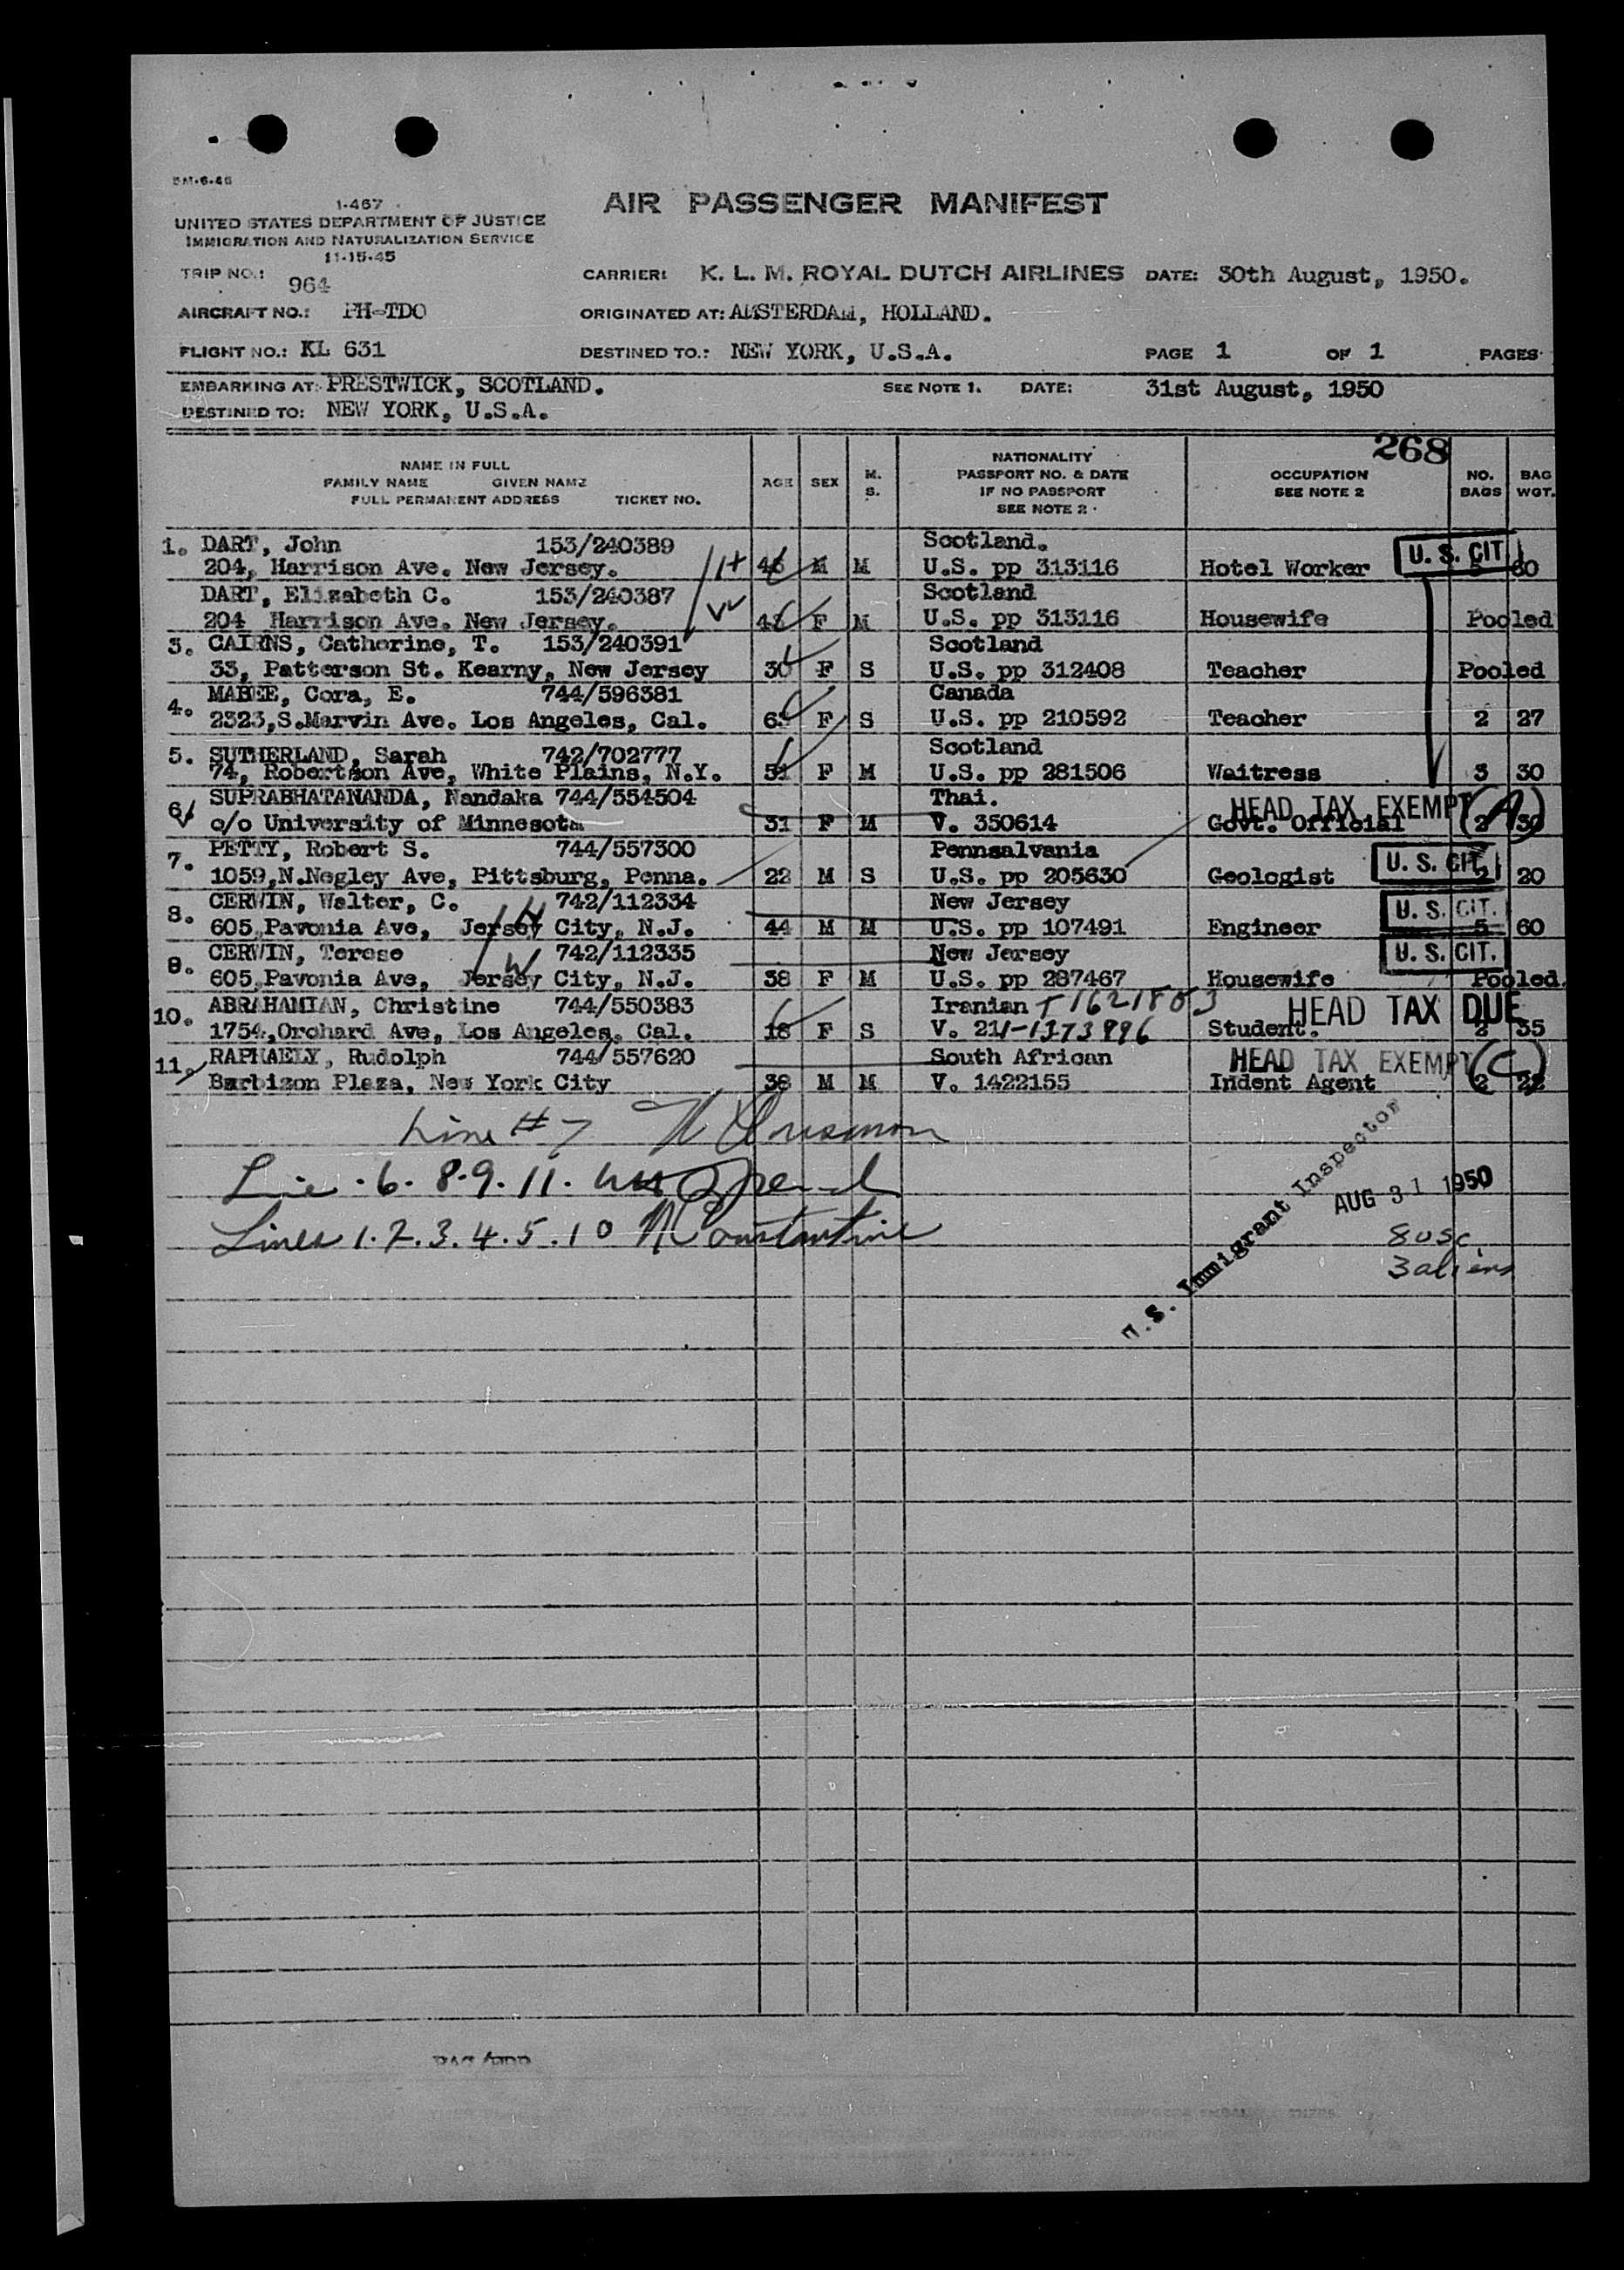 5M-6-46
1-467
UNITED STATES DEPARTMENT OF JUSTICE
IMMIGRATION AND NATURALIZATION SERVICE
11-15-45
AIR PASSENGER MANIFEST
TRIP NO.: 964
CARRIER: K. L. M. ROYAL DUTCH AIRLINES DATE: 30th August, 1950.
AIRCRAFT NO.: PH-TDO
ORIGINATED AT: AMSTERDAM, HOLLAND.
FLIGHT NO.: KL 631
DESTINED TO.: NEW YORK, U.S.A.
PAGE 1 OF 1 PAGES
EMBARKING AT: PRESTWICK, SCOTLAND. SEE NOTE 1. DATE: 31st August, 1950
DESTINED TO: NEW YORK, U.S.A.
268
NAME IN FULL
FAMILY NAME GIVEN NAME
FULL PERMANENT ADDRESS TICKET NO.
AGE SEX M. S.
NATIONALITY
PASSPORT NO. & DATE
IF NO PASSPORT
SEE NOTE 2
OCCUPATION
SEE NOTE 2
NO. BAGS
BAG WGT.
1. DART, John 153/240389 Scotland. U. S. CIT.
204, Harrison Ave. New Jersey. 46 M M U.S. pp 313116 Hotel Worker 60
DART, Elizabeth C. 153/240387 Scotland
204 Harrison Ave. New Jersey. F M U.S. pp 313116 Housewife Pooled
3. CAIRNS, Catherine, T. 153/240391 Scotland
33, Patterson St. Kearny, New Jersey 30 F S U.S. pp 312408 Teacher Pooled
4. MABEE, Cora, E. 744/596381 Canada
2323,S.Marvin Ave. Los Angeles, Cal. F S U.S. pp 210592 Teacher 2 27
5. SUTHERLAND, Sarah 742/702777 Scotland
74, Robertson Ave, White Plains, N.Y. 51 F M U.S. pp 281506 Waitress 3 30
6. SUPRABHATANANDA, Nandaka 744/554504 Thai. HEAD TAX EXEMPT (A)
c/o University of Minnesota 31 F M V. 350614 Govt. Official 2 30
7. PETTY, Robert S. 744/557300 Pennsalvania U. S. CIT.
1059,N.Negley Ave, Pittsburg, Penna. 22 M S U.S. pp 205630 Geologist 2 20
8. CERWIN, Walter, C. 742/112334 New Jersey U. S. CIT.
605,Pavonia Ave, Jersey City, N.J. 44 M M U.S. pp 107491 Engineer 5 60
9. CERWIN, Terese 742/112335 New Jersey U. S. CIT.
605,Pavonia Ave, Jersey City, N.J. 38 F M U.S. pp 287467 Housewife Pooled.
10. ABRAHAMIAN, Christine 744/550383 Iranian T 1621853 HEAD TAX DUE
1754,Orchard Ave, Los Angeles, Cal. 18 F S V. 211-1373996 Student. 2 35
11. RAPHAELY, Rudolph 744/557620 South African HEAD TAX EXEMPT (C)
Barbizon Plaza, New York City 38 M M V. 1422155 Indent Agent 2 22
Line # 7
Line . 6. 8.9. 11.
Lines 1.2.3.4.5.10 Constantine
U.S. Immigrant Inspector
AUG 31 1950
8 USC
3 aliens